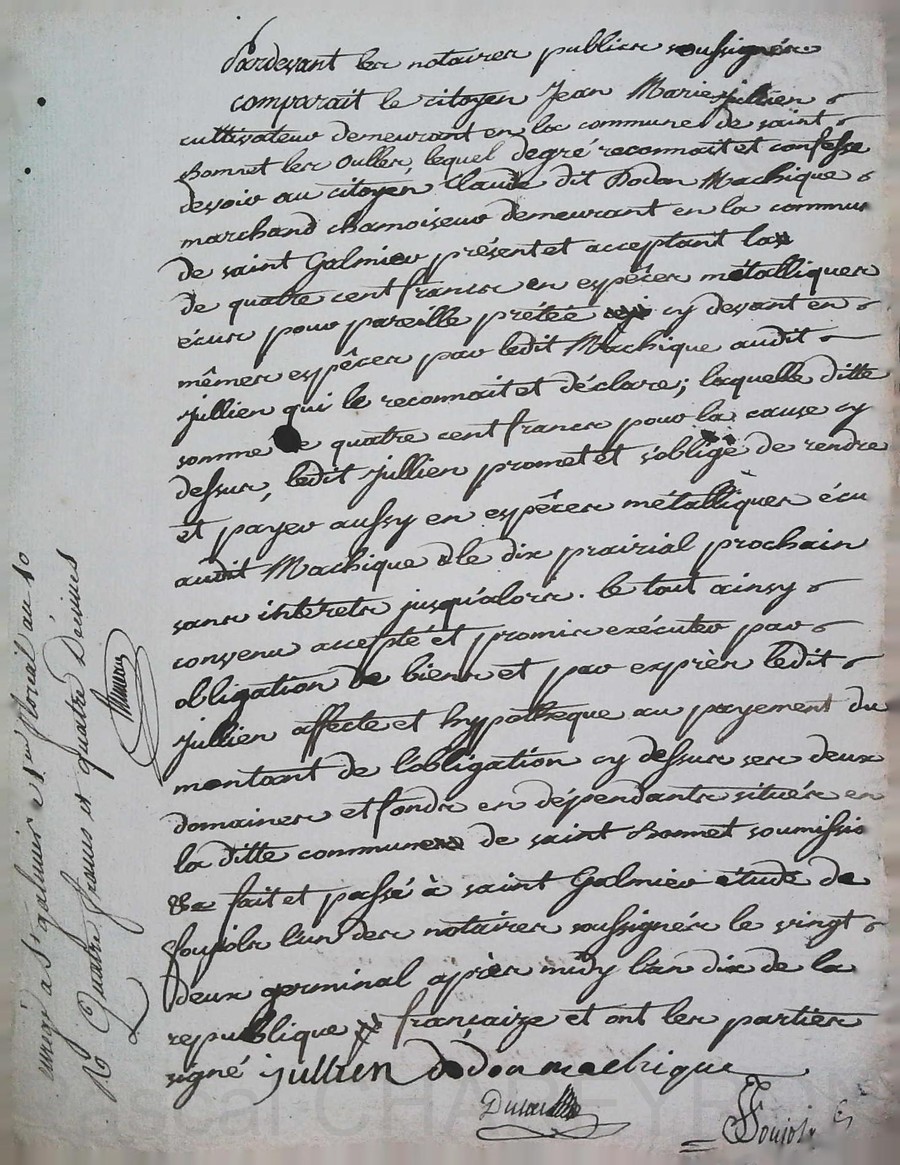 Pardevant les notaires publics soussignés
comparait le citoyen Jean Marie jullien
cultivateur demeurant en la commune de saint
Bonnet les Oulles, lequel degré reconnait et confesse
devoir au citoyen Claude dit Dodon Machique
marchand chamoiseur demeurant en la commune
de saint Galmier présent et acceptant la
de quatre cent francs en espéces métalliques
écus pour pareille prétée cy devant en
mêmes espêces par ledit Machique audit
jullien qui le reconnait et déclare; laquelle ditte
somme de quatre cent francs pour la cause cy
dessus, ledit jullien promet et s'oblige de rendre
et payer aussy en espêces métalliques écu
audit Machique le dix prairial prochain
sans intérets jusqu'alors. le tout ainsy
convenu accepté et promis exécuter par
obligation de biens et par exprès ledit
jullien affecte et hypothèque au payement du
montant de l'obligation cy dessus ses deux
domaines et fonds en dépendants situés en
la ditte commune de saint Bonnet soumissio
&a fait et passé à saint Galmier étude de
Soujols l'un des notaires soussignés le vingt
deux germinal après midy l'an dix de la
republique françaize et ont les parties
signé jullien dodon machique
Soujols
enregé a St galmier le 1er floréal an 10
Rç Quatre francs et quatre Décimes